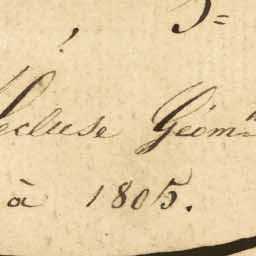 Lecluse Géom.
à 1805.